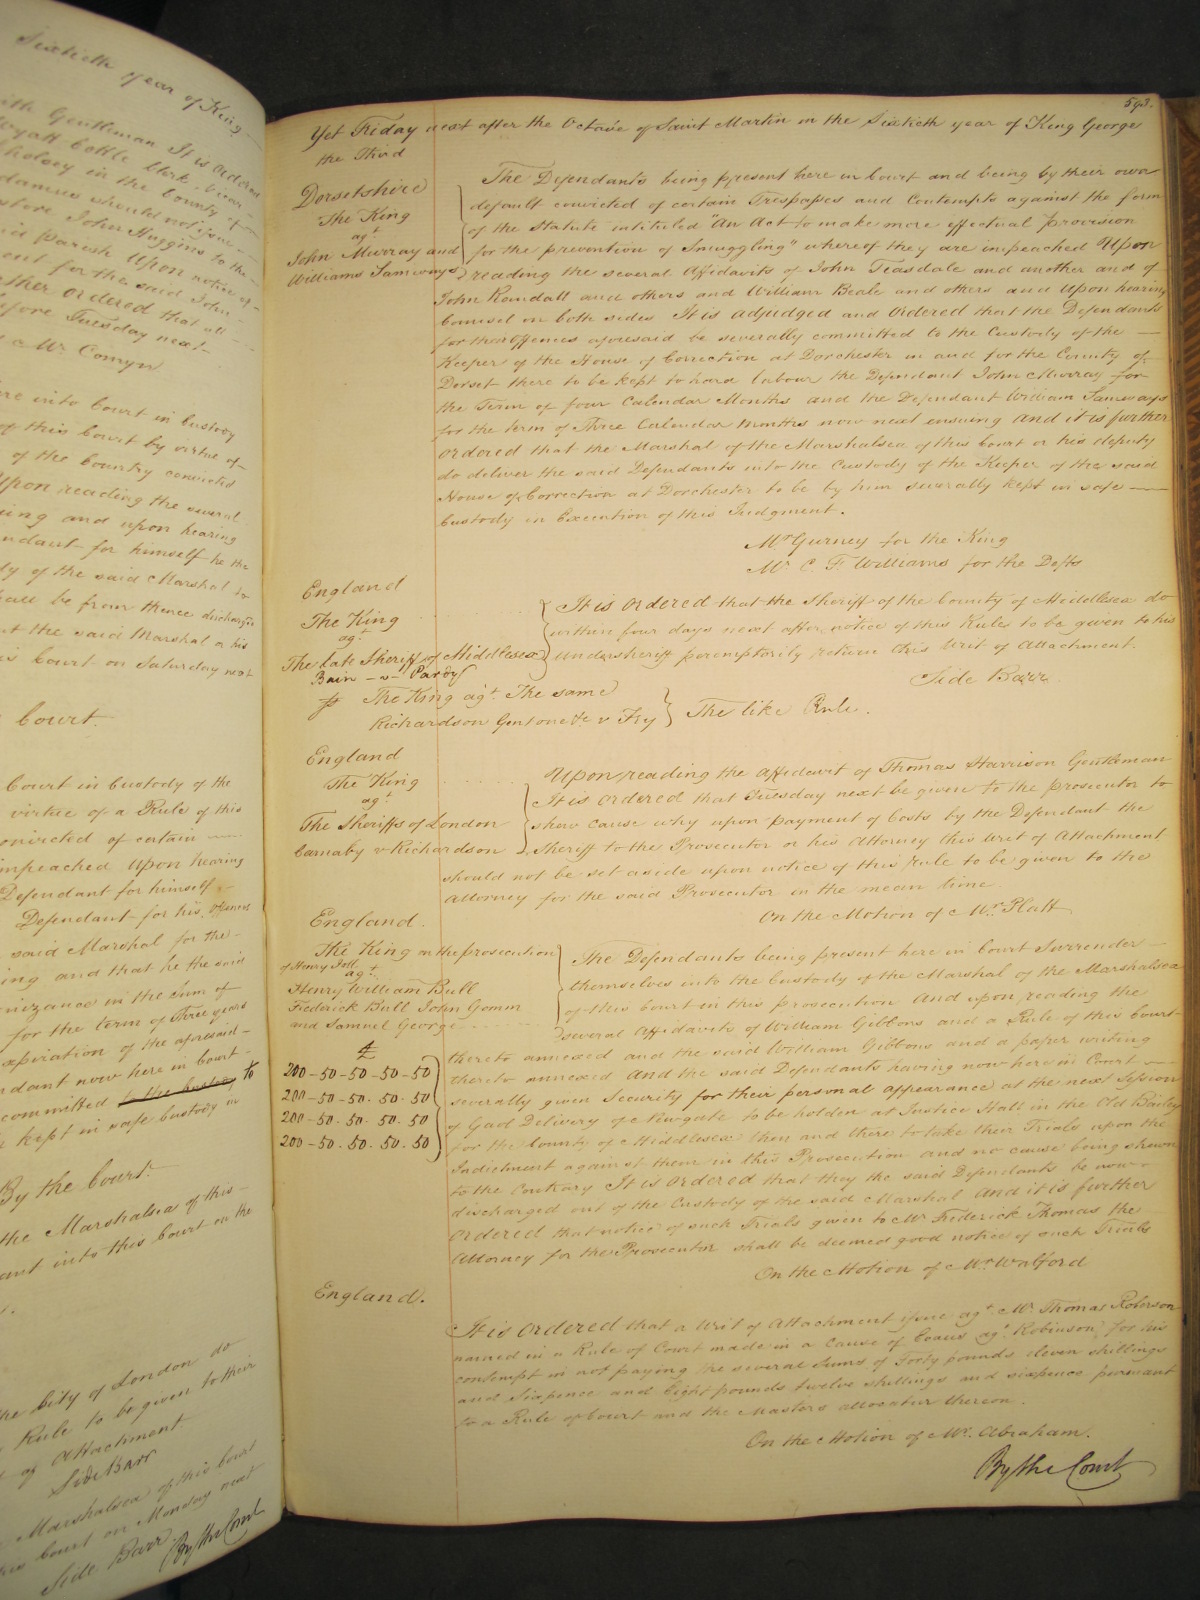 Sixtieth year of King
ith Gentleman It is Ordered
Wyatt Cottle Clerk Vicar
in the County of
damus should not issue
store John Huggins to the
id Parish Upon notice of
ent for the said John
rther Ordered that all
before Tuesday next
Mr. Comyn
re into Court in Custody
of this Court by virtue of
of the Country convicted
Upon reading the several
ing and upon hearing
ndant for himself he the
dy of the said Marshal to
all be from thence discharged
nt the said Marshal or his
is Court on Saturday next
Court.
Court in Custody of the
virtue of a Rule of this
onvicted of certain
impeached Upon hearing
Defendant for himself
Defendant for his Offences
said Marshal for the
ing and that he the said
nizance in the Sum of
for the term of Three years
xpiration of the aforesaid
ndant now here in Court
committed to the Custody to
kept in safe Custody in
By the Court.
the Marshalsea of this
ant into this Court on the
the City of London do
Rule to be given to their
of Attachment.
Side Barr
Marshalsea of this Court
this Court on Monday next
Side Barr. By the Court
593.
Yet Friday next after the Octave of Saint Martin in the Sixtieth year of King George
the Third
Dorsetshire
The King
agt.
John Murray and
Williams Samways
The Defendants being present here in Court and being by their own
default convicted of certain Trespasses and Contempts against the form
of the Statute intituled "An Act to make more effectual provision
for the prevention of Smuggling" whereof they are impeached Upon
reading the several Affidavits of John Teasdale and another and of
John Randall and others and William Beale and others and Upon hearing
Counsel on both sides It is adjudged and Ordered that the Defendants
for their Offences aforesaid be severally committed to the Custody of the
Keeper of the House of Correction at Dorchester in and for the County of
Dorset there to be kept to hard labour the Defendant John Murray for
the Term of four Calendar Months and the Defendant William Samways
for the term of Three Calendar Months now next ensuing And it is further
Ordered that the Marshal of the Marshalsea of this Court or his deputy
do deliver the said Defendants into the Custody of the Keeper of the said
House of Correction at Dorchester to be by him severally kept in safe
Custody in Execution of this Judgment.
Mr Gurney for the King
Mr. C F Williams for the Defts
England
The King
agt.
The late Sheriff of Middlesex
Bain - v - Pardy
It is Ordered that the Sheriff of the County of Middlesex do
within four days next after notice of this Rule to be given to his
Undersheriff peremptorily return this Writ of Attachment.
Side Barr.
The King agt. The same
Richardson Gent one &c v Fry
The like Rule.
England
The King
agt.
The Sheriffs of London
Carnaby v Richardson
Upon reading the Affidavit of Thomas Harrison Gentleman
It is Ordered that Tuesday next be given to the Prosecutor to
shew cause why upon payment of Costs by the Defendant the
Sheriff to the Prosecutor or his Attorney this Writ of Attachment
should not be set aside upon notice of this rule to be given to the
Attorney for the said Prosecutor in the mean time
On the Motion of Mr. Platt
England.
The King on the prosecution
of Henry
agt.
Henry William Bull
Federick Bull John Gomm
and Samuel George
The Defendants being present here in Court Surrender
themselves into the Custody of the Marshal of the Marshalsea
of this Court in this prosecution And upon reading the
several Affidavits of William Gibbons and a Rule of this Court
thereto annexed and the said William Gibbons and a paper writing
thereto annexed And the said Defendants having now here in Court
severally given Security for their personal appearance at the next Session
of Gaol Delivery of Newgate to be holden at Justice Hall in the Old Bailey
for the County of Middlesex then and there to take their Trials upon the
Indictment against them in this Prosecution and no cause being shewn
to the Contrary It is Ordered that they the said Defendants be now
discharged out of the Custody of the said Marshal And it is further
Ordered that notice of such Trials given to Mr. Frederick Thomas the
Attorney for the Prosecutor shall be deemed good notice of such Trials
£
200 - 50 - 50 - 50 - 50
200 - 50 - 50 - 50 - 50
200 - 50 - 50 - 50 - 50
200 - 50 - 50 - 50 - 50
On the Motion of Mr. Walford
England.
It is Ordered that a Writ of Attachment issue agt. Mr. Thomas Roberson
named in a Rule of Court made in a Cause of Evans agt. Robinson, for his
contempt in not paying the several Sums of Forty pounds eleven shillings
and Sixpence and Eight pounds twelve shillings and sixpence pursuant
to a Rule of Court and the Masters allocatur thereon.
On the Motion of Mr. Abraham.
By the Court